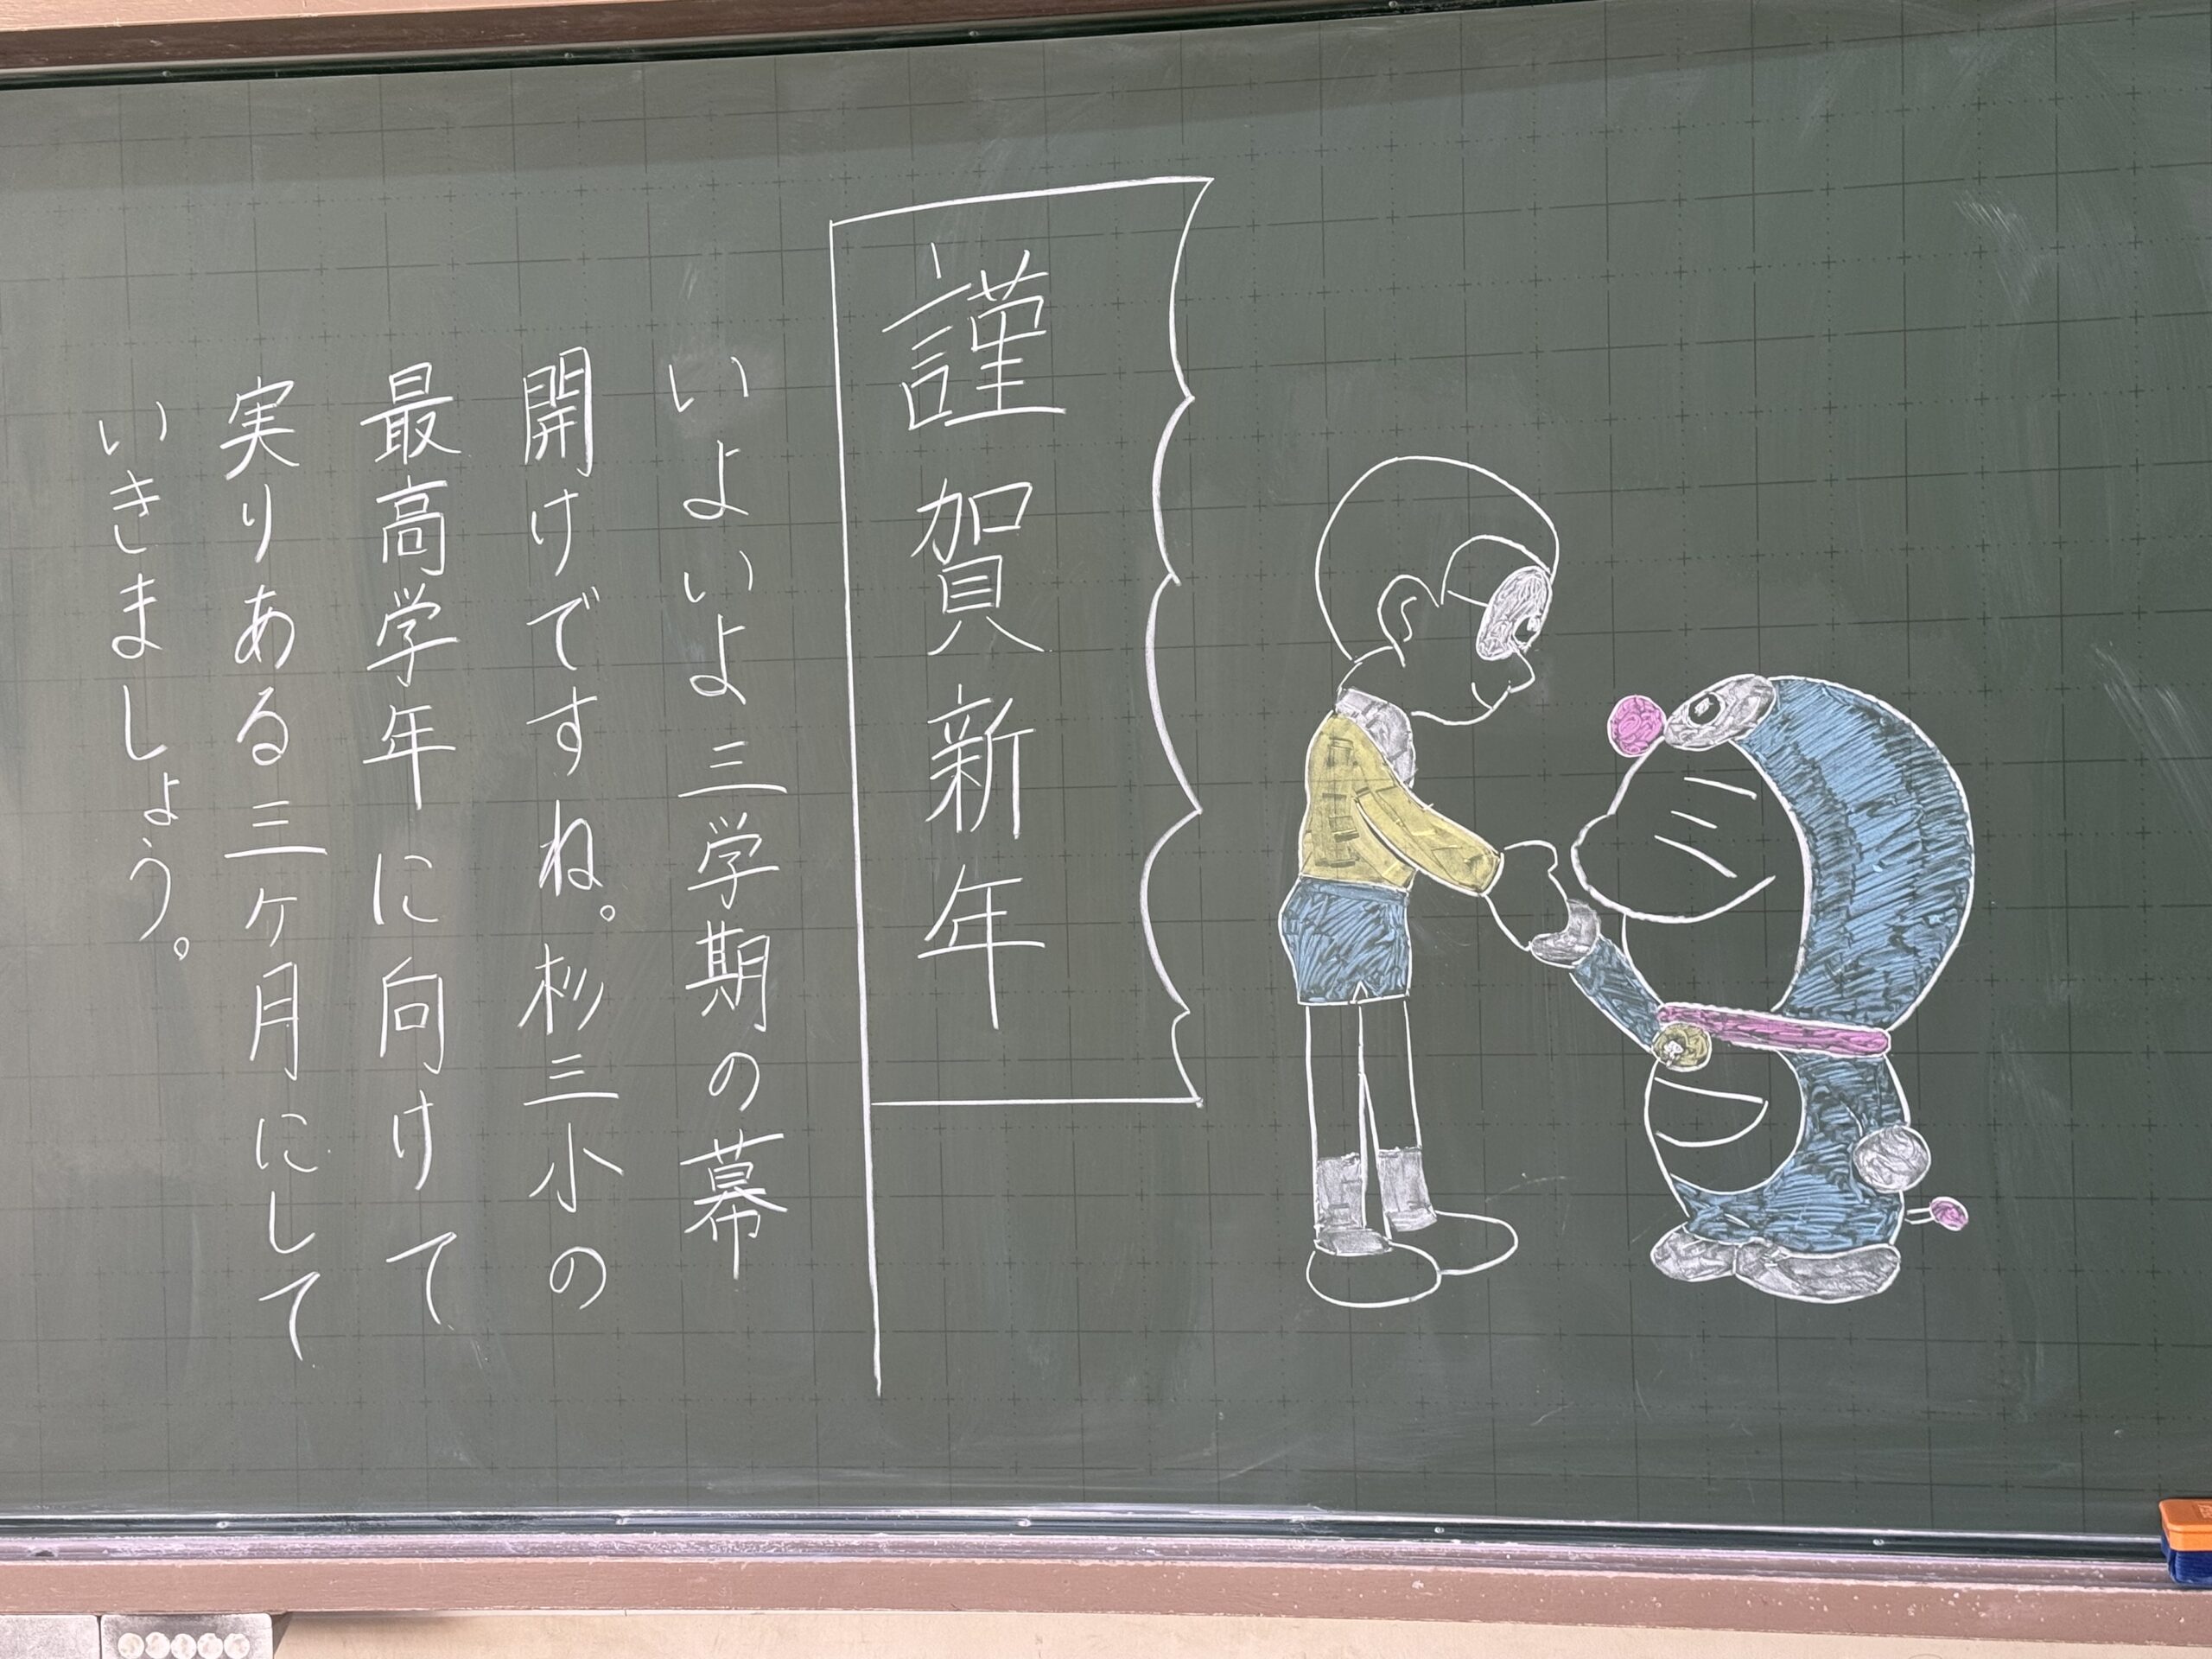 謹賀新年
いよいよ三学期の幕
開けですね。杉三小の
最高学年に向けて
実りある三ヶ月にして
いきましょう。